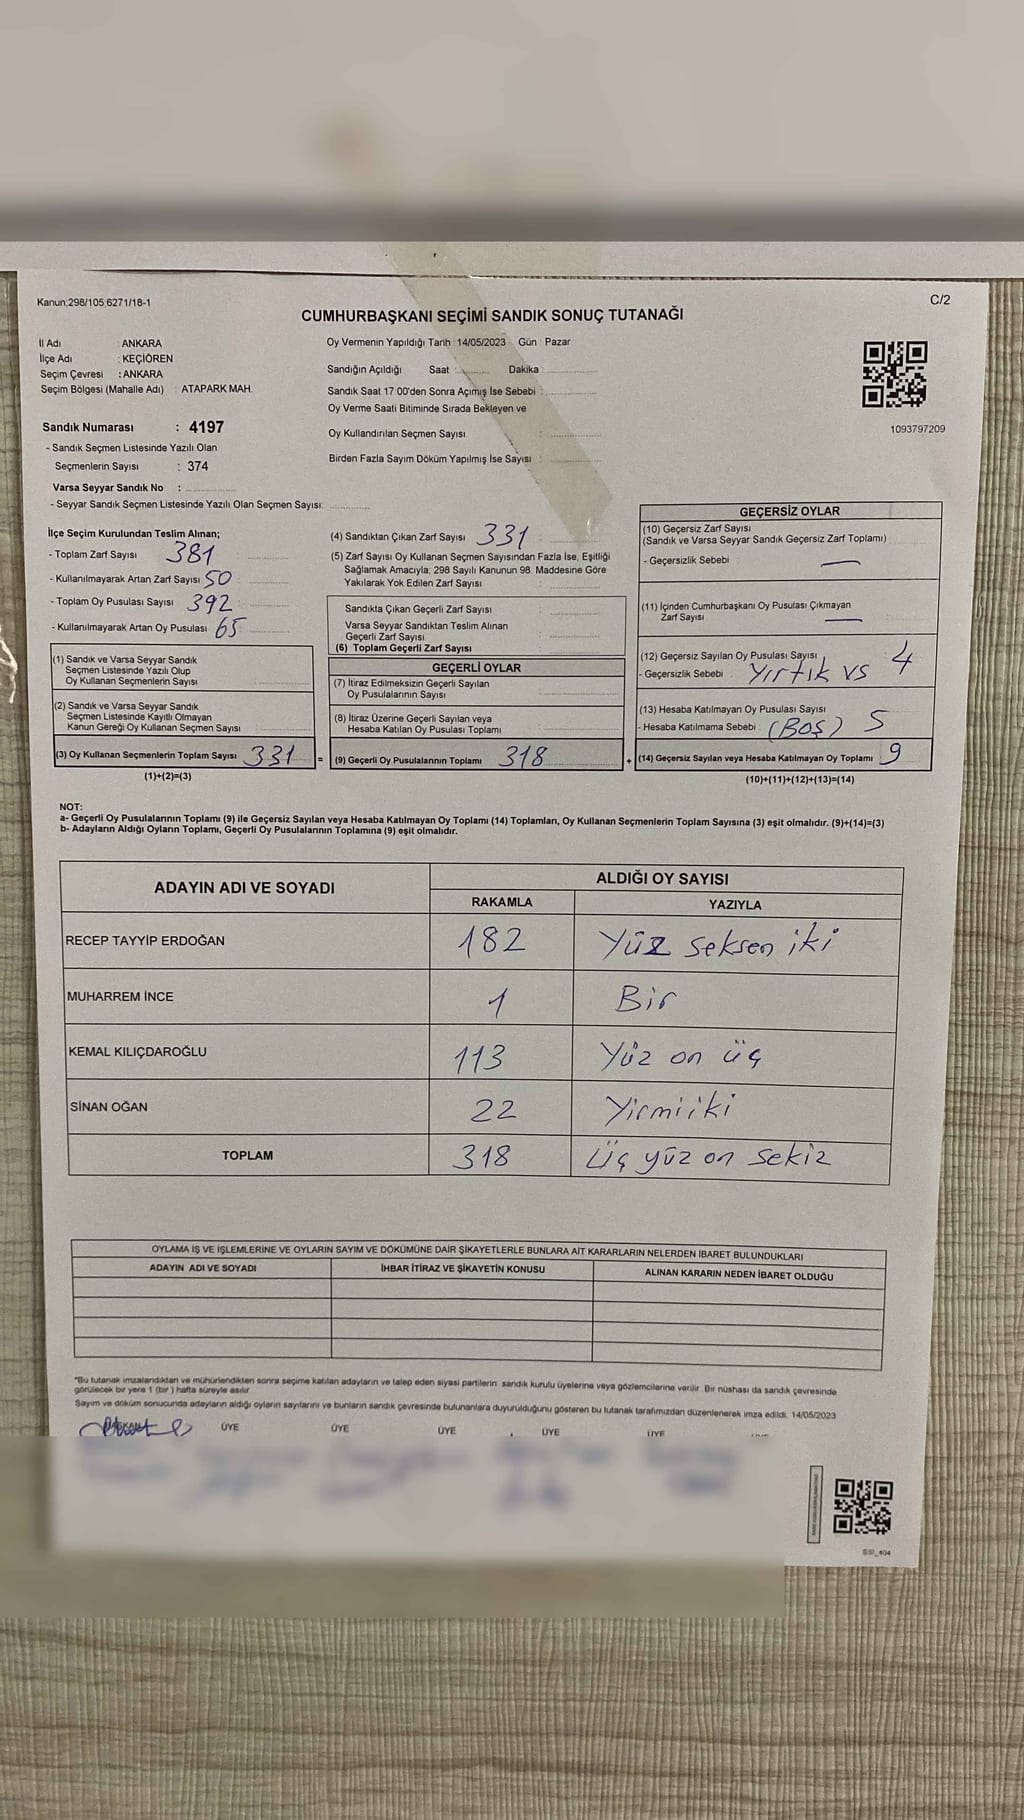 Kanun;298/105,6271/18-1
C/2
CUMHURBAŞKANI SEÇİMİ SANDIK SONUÇ TUTANAĞI
İl Adı : ANKARA
İlçe Adı : KEÇİÖREN
Seçim Çevresi : ANKARA
Seçim Bölgesi (Mahalle Adı) : ATAPARK MAH.
Sandık Numarası : 4197
- Sandık Seçmen Listesinde Yazılı Olan
Seçmenlerin Sayısı : 374
Varsa Seyyar Sandık No :
- Seyyar Sandık Seçmen Listesinde Yazılı Olan Seçmen Sayısı:
Oy Vermenin Yapıldığı Tarih : 14/05/2023 Gün : Pazar
Sandığın Açıldığı Saat : Dakika :
Sandık Saat 17:00'den Sonra Açımış İse Sebebi :
Oy Verme Saati Bitiminde Sırada Bekleyen ve
Oy Kullandırılan Seçmen Sayısı :
Birden Fazla Sayım Döküm Yapılmış İse Sayısı :
1093797209
İlçe Seçim Kurulundan Teslim Alınan;
- Toplam Zarf Sayısı 381
- Kullanılmayarak Artan Zarf Sayısı 50
- Toplam Oy Pusulası Sayısı 392
- Kullanılmayarak Artan Oy Pusulası 65
(1) Sandık ve Varsa Seyyar Sandık
Seçmen Listesinde Yazılı Olup
Oy Kullanan Seçmenlerin Sayısı
(2) Sandık ve Varsa Seyyar Sandık
Seçmen Listesinde Kayıtlı Olmayan
Kanun Gereği Oy Kullanan Seçmen Sayısı
(3) Oy Kullanan Seçmenlerin Toplam Sayısı 331
(1)+(2)=(3)
=
(4) Sandıktan Çıkan Zarf Sayısı 331
(5) Zarf Sayısı Oy Kullanan Seçmen Sayısından Fazla İse, Eşitliği
Sağlamak Amacıyla; 298 Sayılı Kanunun 98. Maddesine Göre
Yakılarak Yok Edilen Zarf Sayısı
Sandıkta Çıkan Geçerli Zarf Sayısı :
Varsa Seyyar Sandıktan Teslim Alınan
Geçerli Zarf Sayısı :
(6) Toplam Geçerli Zarf Sayısı
GEÇERLİ OYLAR
(7) İtiraz Edilmeksizin Geçerli Sayılan
Oy Pusulalarının Sayısı
(8) İtiraz Üzerine Geçerli Sayılan veya
Hesaba Katılan Oy Pusulası Toplamı
(9) Geçerli Oy Pusulalarının Toplamı 318
+
GEÇERSİZ OYLAR
(10) Geçersiz Zarf Sayısı
(Sandık ve Varsa Seyyar Sandık Geçersiz Zarf Toplamı)
- Geçersizlik Sebebi —
(11) İçinden Cumhurbaşkanı Oy Pusulası Çıkmayan
Zarf Sayısı —
(12) Geçersiz Sayılan Oy Pusulası Sayısı 4
- Geçersizlik Sebebi Yırtık vs
(13) Hesaba Katılmayan Oy Pusulası Sayısı
- Hesaba Katılmama Sebebi (Boş) 5
(14) Geçersiz Sayılan veya Hesaba Katılmayan Oy Toplamı 9
(10)+(11)+(12)+(13)=(14)
NOT:
a- Geçerli Oy Pusulalarının Toplamı (9) ile Geçersiz Sayılan veya Hesaba Katılmayan Oy Toplamı (14) Toplamları, Oy Kullanan Seçmenlerin Toplam Sayısına (3) eşit olmalıdır. (9)+(14)=(3)
b- Adayların Aldığı Oyların Toplamı, Geçerli Oy Pusulalarının Toplamına (9) eşit olmalıdır.
ADAYIN ADI VE SOYADI ALDIĞI OY SAYISI
RAKAMLA YAZIYLA
RECEP TAYYİP ERDOĞAN 182 Yüz seksen iki
MUHARREM İNCE 1 Bir
KEMAL KILIÇDAROĞLU 113 Yüz on üç
SİNAN OĞAN 22 Yirmiiki
TOPLAM 318 Üç yüz on sekiz
OYLAMA İŞ VE İŞLEMLERİNE VE OYLARIN SAYIM VE DÖKÜMÜNE DAİR ŞİKAYETLERLE BUNLARA AİT KARARLARIN NELERDEN İBARET BULUNDUKLARI
ADAYIN ADI VE SOYADI İHBAR İTİRAZ VE ŞİKAYETİN KONUSU ALINAN KARARIN NEDEN İBARET OLDUĞU
*Bu tutanak imzalandıktan ve mühürlendikten sonra seçime katılan adayların ve talep eden siyasi partilerin sandık kurulu üyelerine veya gözlemcilerine verilir. Bir nüshası da sandık çevresinde
görülecek bir yere 1 (bir) hafta süreyle asılır.
Sayım ve döküm sonucunda adayların aldığı oyların sayılarını ve bunların sandık çevresinde bulunanlara duyurulduğunu gösteren bu tutanak tarafımızdan düzenlenerek imza edildi. 14/05/2023
BAŞKAN ÜYE ÜYE ÜYE ÜYE ÜYE